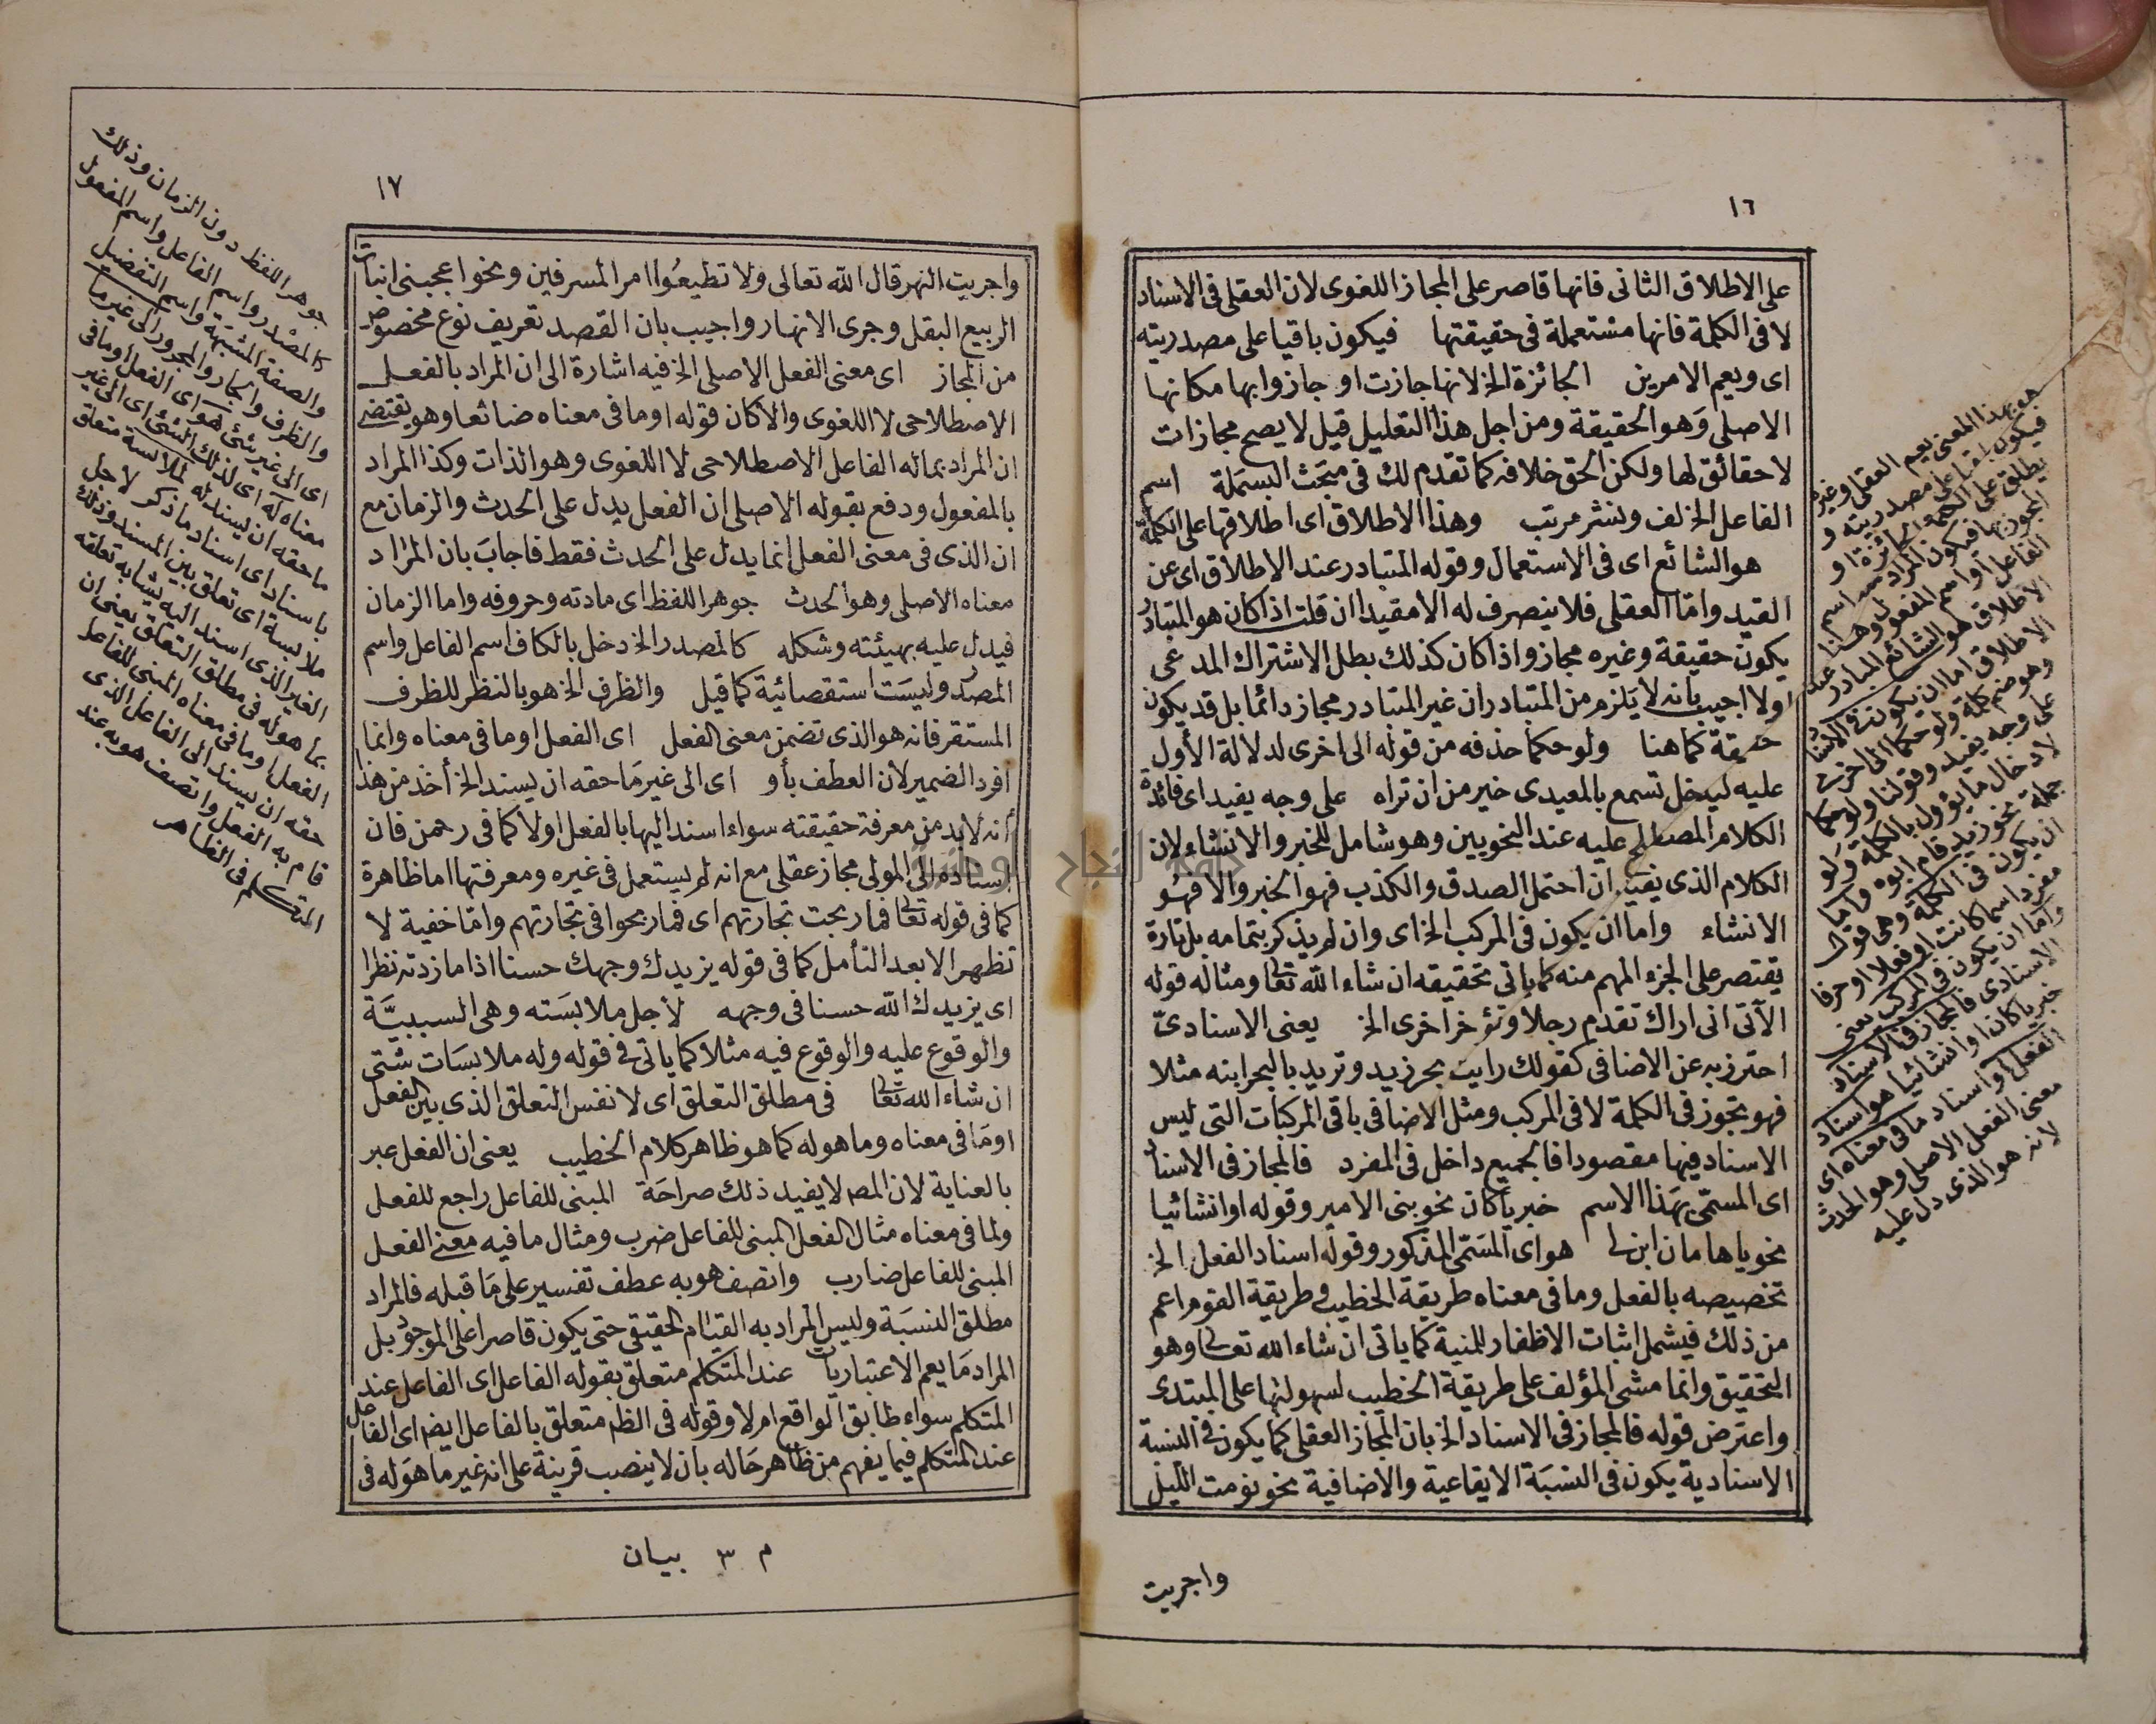 ١٦
على الاطلاق الثانى فانها قاصر على المجاز اللغوى لان العقلى فى الاسناد
لا فى الكلمة فانها مستعملة فى حقيقتها فيكون باقيا على مصدريته
اى ويعم الامرين الجائزة الخ لانها جازت او جازوا بها مكانها
الاصلى وهو الحقيقة ومن اجل هذا التعليل قيل لا يصح مجازات
لا حقائق لها ولكن الحق خلافه كما تقدم لك فى مبحث البسملة اسم
الفاعل الخ لف ونشر مرتب وهذا الاطلاق اى اطلاقها على الكلمة
هو الشائع اى فى الاستعمال وقوله المتبادر عند الاطلاق اى عن
القيد واما العقلى فلا ينصرف له الا مقيدا ان قلت اذا كان هو المتبادر
يكون حقيقة وغيره مجاز واذا كان كذلك بطل الاشتراك المدعى
اولا اجيب بانه لا يلزم من المتبادر ان غير المتبادر مجاز دائما بل قد يكون
حقيقة كما هنا ولو حكما حذفه من قوله الى اخرى لدلالة الأول
عليه ليدخل تسمع بالمعيدى خير من ان تراه على وجه يفيد اى فائدة
الكلام المصطلح عليه عند النحويين وهو شامل للخبر والانشاء لان
الكلام الذى يفيد ان احتمل الصدق والكذب فهو الخبر والا فهو
الانشاء واما ان يكون فى المركب الخ اى وان لم يذكر بتمامه بل تارة
يقتصر على الجزء المهم منه كما ياتى تحقيقه ان شاء الله تعالى ومثاله قوله
الآتى انى اراك تقدم رجلا وتؤخر اخرى الخ يعنى الاسنادى
احترز به عن الاضافى كقولك رايت بحر زيد وتريد بالبحر ابنه مثلا
فهو تجوز فى الكلمة لا فى المركب ومثل الاضافى باقى المركبات التى ليس
الاسناد فيها مقصودا فالجميع داخل فى المفرد فالمجاز فى الاسناد
اى المسمى بهذا الاسم خبريا كان نحو بنى الامير وقوله او انشائيا
نحو يا هامان ابن لى هو اى المسمى المذكور وقوله اسناد الفعل الخ
تخصيصه بالفعل وما فى معناه طريقة الخطيب وطريقة القوم اعم
من ذلك فيشمل اثبات الاظفار للمنية كما ياتى ان شاء الله تعالى وهو
التحقيق وانما مشى المؤلف على طريقة الخطيب لسهولتها على المبتدى
واعترض قوله فالمجاز فى الاسناد الخ بان المجاز العقلى كما يكون فى النسبة
الاسنادية يكون فى النسبة الايقاعية والاضافية نحو نومت الليل
واجريت
هو بهذا المعنى يعم العقلى وغيره
فيكون باقيا على مصدريته و
يطلق على الكلمة الجائزة او
المجوز بها فيكون المراد منه اسم
الفاعل او اسم المفعول وهذا
الاطلاق هو الشائع المتبادر عند
الاطلاق اما ان يكون فى الاسناد
وهو ضم كلمة ولو حكما الى اخرى
على وجه يفيد وقولنا ولو حكما
لادخال ما يؤول بالكلمة ولو
جملة نحو زيد قام ابوه واما
ان يكون فى الكلمة وهى قول
مفرد اسما كانت او فعلا او حرفا
واما ان يكون فى المركب يعنى
الاسنادى فالمجاز فى الاسناد
خبريا كان او انشائيا هو اسناد
الفعل او اسناد ما فى معناه اى
معنى الفعل الاصلى وهو الحدث
لانه هو الذى دل عليه
١٧
واجريت النهر قال الله تعالى ولا تطيعوا امر المسرفين ونحو اعجبنى انبات
الربيع البقل وجرى الانهار واجيب بان القصد تعريف نوع مخصوص
من المجاز اى معنى الفعل الاصلى الخ فيه اشارة الى ان المراد بالفعل
الاصطلاحى لا اللغوى والا كان قوله او ما فى معناه ضائعا وهو يقتضى
ان المراد بماله الفاعل الاصطلاحى لا اللغوى وهو الذات وكذا المراد
بالمفعول ودفع بقوله الاصلى ان الفعل يدل على الحدث والزمان مع
ان الذى فى معنى الفعل انما يدل على الحدث فقط فاجاب بان المراد
معناه الاصلى وهو الحدث جوهر اللفظ اى مادته وحروفه واما الزمان
فيدل عليه بهيئته وشكله كالمصدر الخ دخل بالكاف اسم الفاعل واسم
المصدر وليست استقصائية كما قيل والظرف الخ هو بالنظر للظرف
المستقر فانه هو الذى تضمن معنى الفعل اى الفعل او ما فى معناه وانما
افرد الضمير لان العطف بأو اى الى غير ما حقه ان يسند الخ أخذ من هذا
أنه لابد من معرفة حقيقته سواء اسند اليها بالفعل اولا كما فى رحمن فان
اسناده الى المولى مجاز عقلى مع انه لم يستعمل فى غيره ومعرفتها اما ظاهرة
كما فى قوله تعالى فما ربحت تجارتهم اى فما ربحوا فى تجارتهم واما خفية لا
تظهر الا بعد التأمل كما فى قوله يزيدك وجهك حسنا اذا ما زدته نظرا
اى يزيدك الله حسنا فى وجهه لأجل ملابسته وهى السببية
والوقوع عليه والوقوع فيه مثلا كما ياتى فى قوله وله ملابسات شتى
ان شاء الله تعالى فى مطلق التعلق اى لا نفس التعلق الذى بين الفعل
او ما فى معناه وما هو له كما هو ظاهر كلام الخطيب يعنى ان الفعل عبر
بالعناية لان المصـ لا يفيد ذلك صراحة المبنى للفاعل راجع للفعل
ولما فى معناه مثال الفعل المبنى للفاعل ضرب ومثال ما فيه معنى الفعل
المبنى للفاعل ضارب واتصف هو به عطف تفسير على ما قبله فالمراد
مطلق النسبة وليس المراد به القيام الحقيقى حتى يكون قاصرا على الموجود بل
المراد ما يعم الاعتباريات عند المتكلم متعلق بقوله الفاعل اى الفاعل عند
المتكلم سواء طابق الواقع ام لا وقوله فى الظـ متعلق بالفاعل ايضـ اى الفاعل
عند المتكلم فيما يفهم من ظاهر حاله بان لا ينصب قرينة على انه غير ما هو له فى
م ٣ بيان
جوهر اللفظ دون الزمان وذلك
كالمصدر واسم الفاعل واسم المفعول
والصفة المشبهة واسم التفضيل
والظرف والجار والمجرور الى غير ما
اى الى غير شئ هو اى الفعل او ما فى
معناه له اى لذلك الشئ اى الى غير
ما حقه ان يسند له لملابسة متعلق
باسناد اى اسناد ما ذكر لاجل
ملابسة اى تعلق بين المسند وذلك
الغير الذى اسند اليه يشابه تعلقه
بما هو له فى مطلق التعلق يعنى ان
الفعل او ما فى معناه المبنى للفاعل
حقه ان يسند الى الفاعل الذى
قام به الفعل واتصف هو به عند
المتكلم فى الظاهر